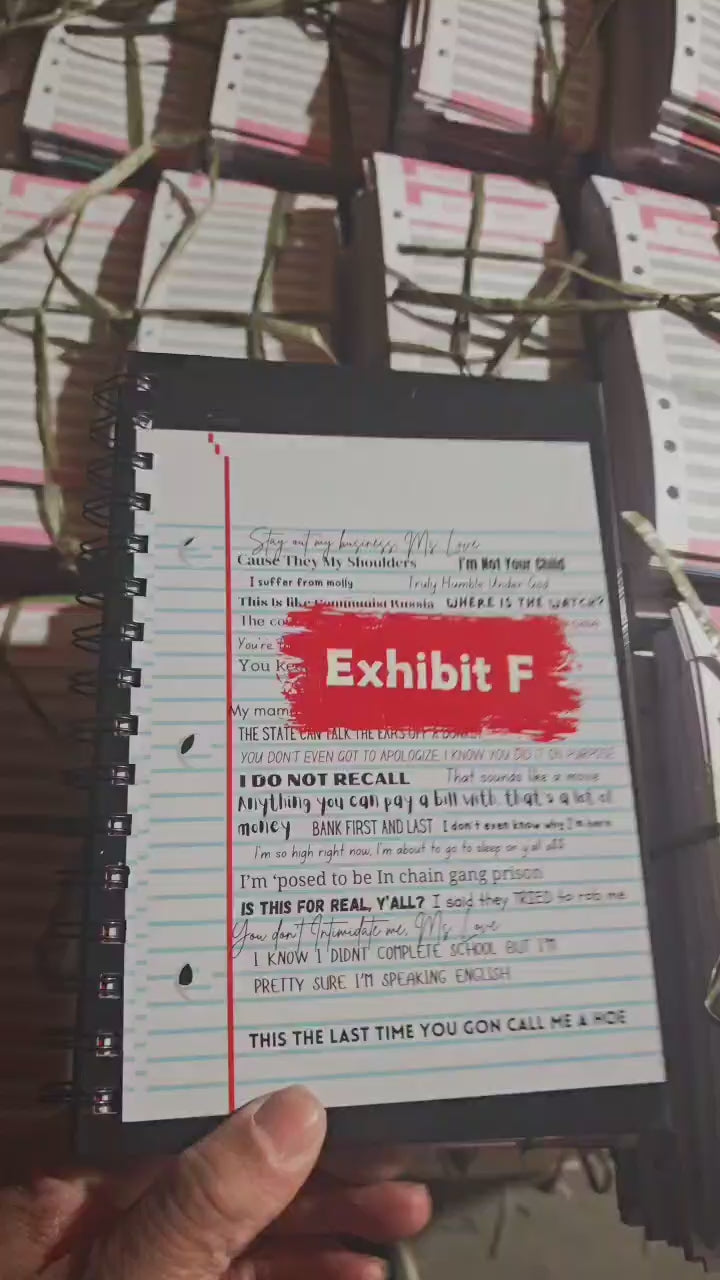 Stay out my business, Ms. Love
Cause They My Shoulders I'm Not Your Child
I suffer from molly Truly Humble Under God
This is like Communist Russia WHERE IS THE WATCH?
The
You're
You
Exhibit F
My
THE STATE CAN TALK THE EARS OFF A DONKEY
YOU DON'T EVEN GOT TO APOLOGIZE, I KNOW YOU DID IT ON PURPOSE
I DO NOT RECALL That sounds like a movie
Anything you can pay a bill with, that's a lot of
money BANK FIRST AND LAST I don't even know why I'm here
I'm so high right now, I'm about to go to sleep on y'all a$$
I'm 'posed to be In chain gang prison
IS THIS FOR REAL, Y'ALL? I said they TRIED to rob me
You don't Intimidate me, Ms. Love
I KNOW I DIDNT COMPLETE SCHOOL BUT I'M
PRETTY SURE I'M SPEAKING ENGLISH
THIS THE LAST TIME YOU GON CALL ME A HOE